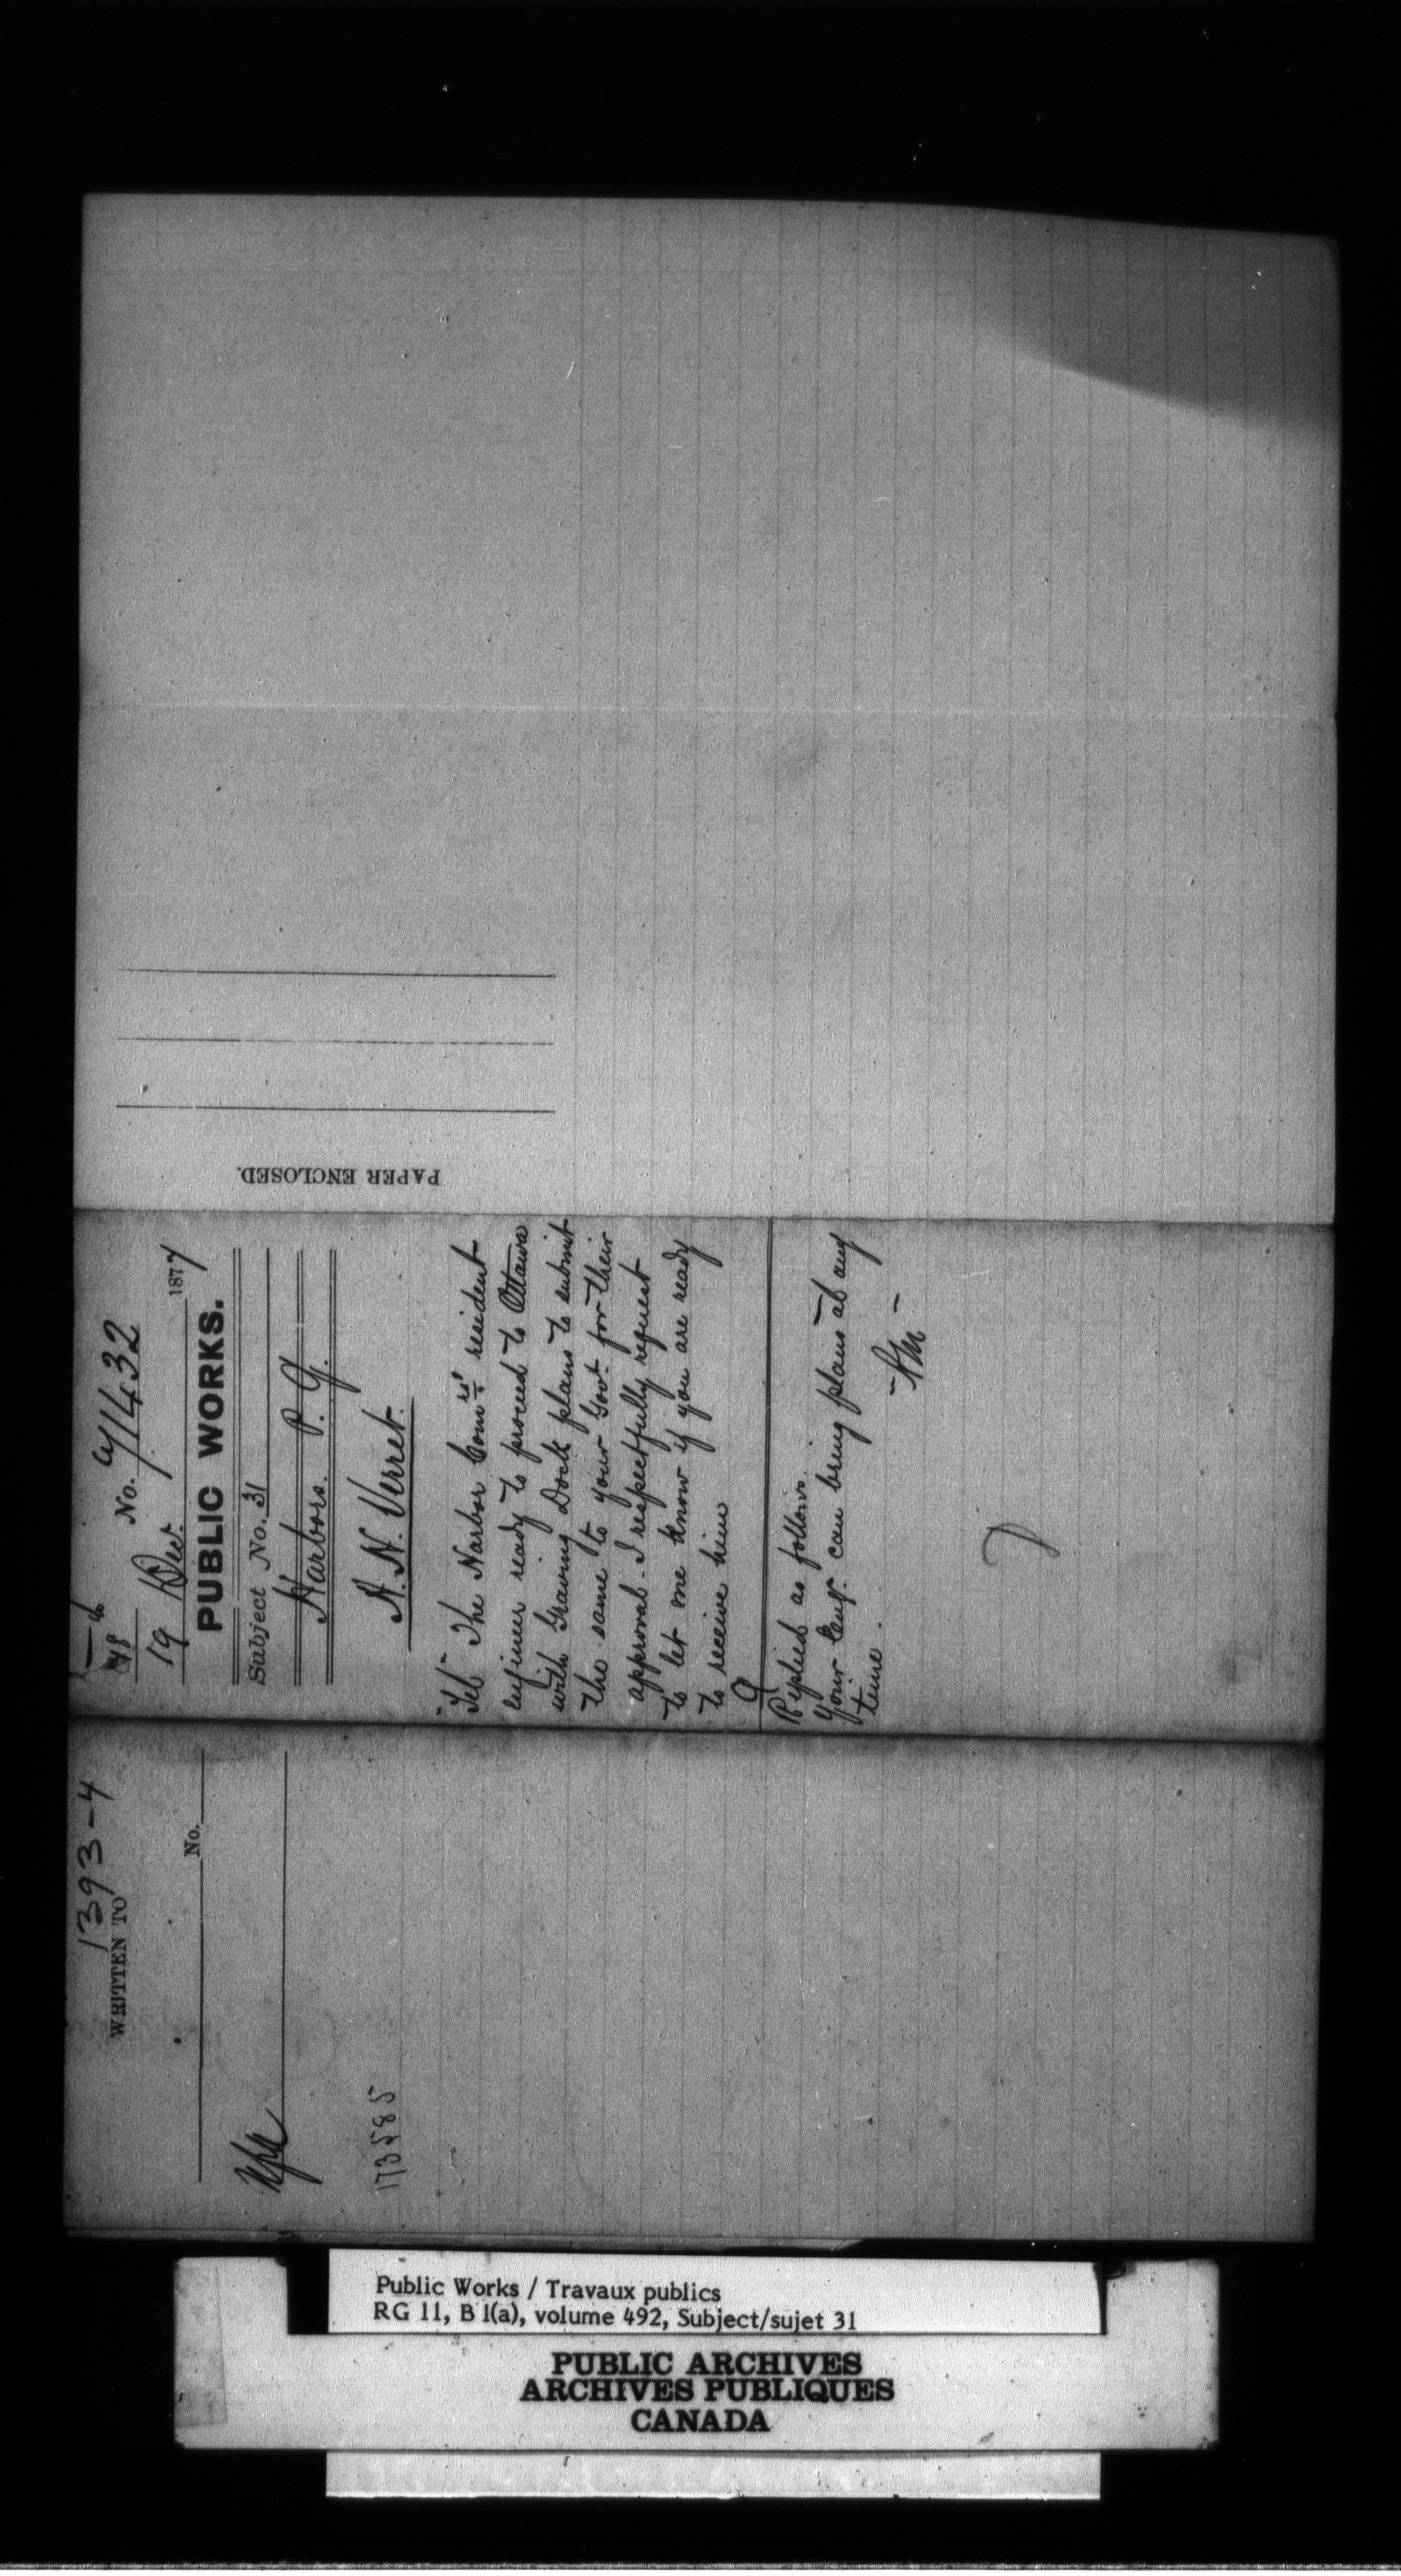 1393-4
WRITTEN TO
No.
173585
No. 71432
19 Dec. 1877
PUBLIC WORKS.
Subject No. 31
Harbors P. Q.
A. H. Verret.
"Tel" The Harbor Com rs' resident
engineer ready to proceed to Ottawa
with Graving Dock plans to submit
the same to your Govt. for their
approval - I respectfully request
to let me know if you are ready
to receive him
Replied as follows.
Your Engr. can bring plans at any
time.
PAPER ENCLOSED.
Public Works / Travaux publics
RG 11, B 1(a), volume 492, Subject/sujet 31
PUBLIC ARCHIVES
ARCHIVES PUBLIQUES
CANADA